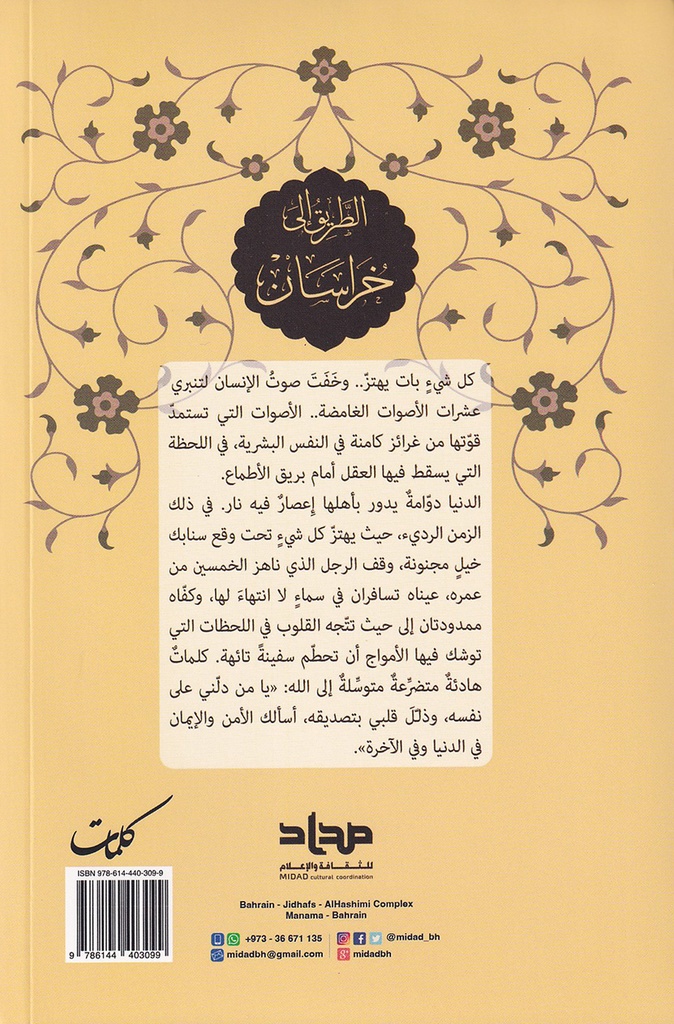 الطَّرِيقُ إلى
خُرَاسَانْ
كل شيءٍ بات يهتزّ.. وخَفَتَ صوتُ الإنسان لتنبري
عشرات الأصوات الغامضة.. الأصوات التي تستمدّ
قوّتها من غرائز كامنة في النفس البشرية، في اللحظة
التي يسقط فيها العقل أمام بريق الأطماع.
الدنيا دوّامةٌ يدور بأهلها إعصارٌ فيه نار. في ذلك
الزمن الرديء، حيث يهتزّ كل شيءٍ تحت وقع سنابك
خيلٍ مجنونة، وقف الرجل الذي ناهز الخمسين من
عمره، عيناه تسافران في سماءٍ لا انتهاءَ لها، وكفّاه
ممدودتان إلى حيث تتّجه القلوب في اللحظات التي
توشك فيها الأمواج أن تحطّم سفينةً تائهة. كلماتٌ
هادئةٌ متضرِّعةٌ متوسِّلةٌ إلى الله: «يا من دلّني على
نفسه، وذلّلَ قلبي بتصديقه، أسألك الأمن والإيمان
في الدنيا وفي الآخرة».
كلمات
مداد
للثقافة والإعلام
MIDAD cultural coordination
ISBN 978-614-440-309-9
9 786144 403099
Bahrain - Jidhafs - AlHashimi Complex
Manama - Bahrain
+973 - 36 671 135
@midad_bh
midadbh@gmail.com
midadbh